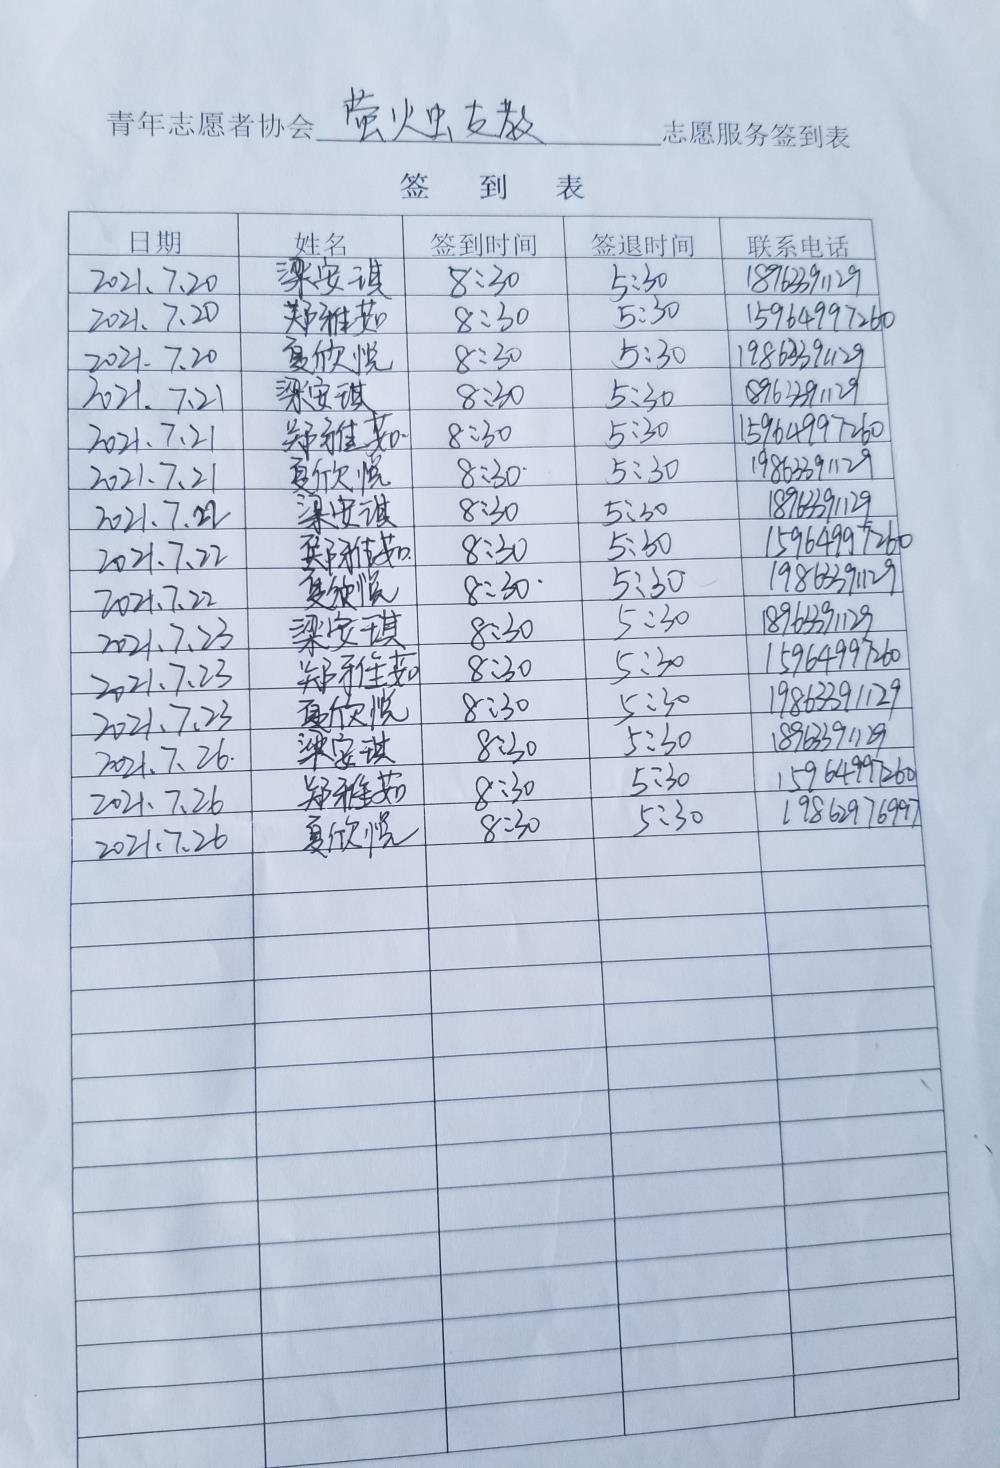 青年志愿者协会 萤火虫支教 志愿服务签到表
签 到 表
日期 姓名 签到时间 签退时间 联系电话
2021.7.20 梁安琪 8:30 5:30 18963391129
2021.7.20 郑雅茹 8:30 5:30 15964997260
2021.7.20 夏欣悦 8:30 5:30 19863391129
2021.7.21 梁安琪 8:30 5:30 18963391129
2021.7.21 郑雅茹 8:30 5:30 15964997260
2021.7.21 夏欣悦 8:30 5:30 19863391129
2021.7.22 梁安琪 8:30 5:30 18963391129
2021.7.22 郑雅茹 8:30 5:30 15964997260
2021.7.22 夏欣悦 8:30 5:30 19863391129
2021.7.23 梁安琪 8:30 5:30 18963391129
2021.7.23 郑雅茹 8:30 5:30 15964997260
2021.7.23 夏欣悦 8:30 5:30 19863391129
2021.7.26 梁安琪 8:30 5:30 18963391129
2021.7.26 郑雅茹 8:30 5:30 15964997260
2021.7.26 夏欣悦 8:30 5:30 19862976997